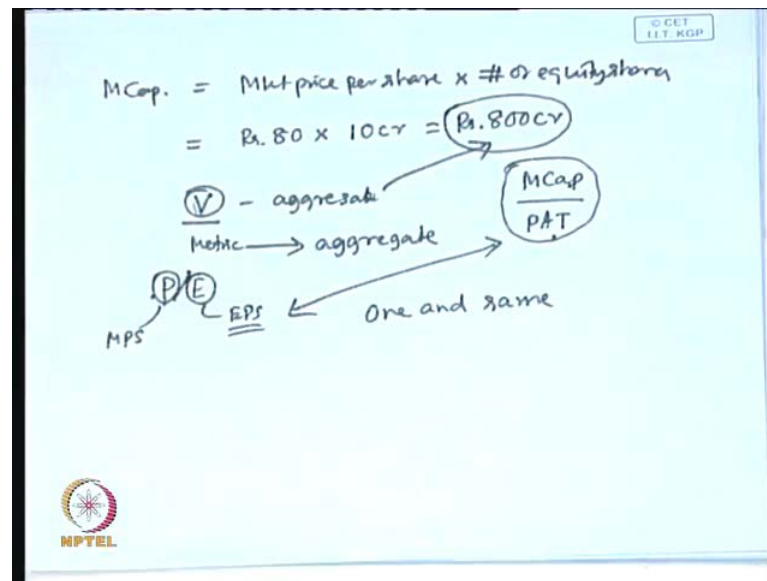 © CET
I.I.T. KGP
MCap. = Mkt price per share × # of equity shares
= Rs. 80 × 10cr = Rs. 800cr
V - aggregate
MCap
PAT
Metric → aggregate
P/E
EPS
One and same
MPS
NPTEL